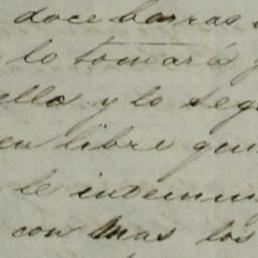 doce barras
lo tomará
ello y lo seg
en libre que
le indemn
con mas los